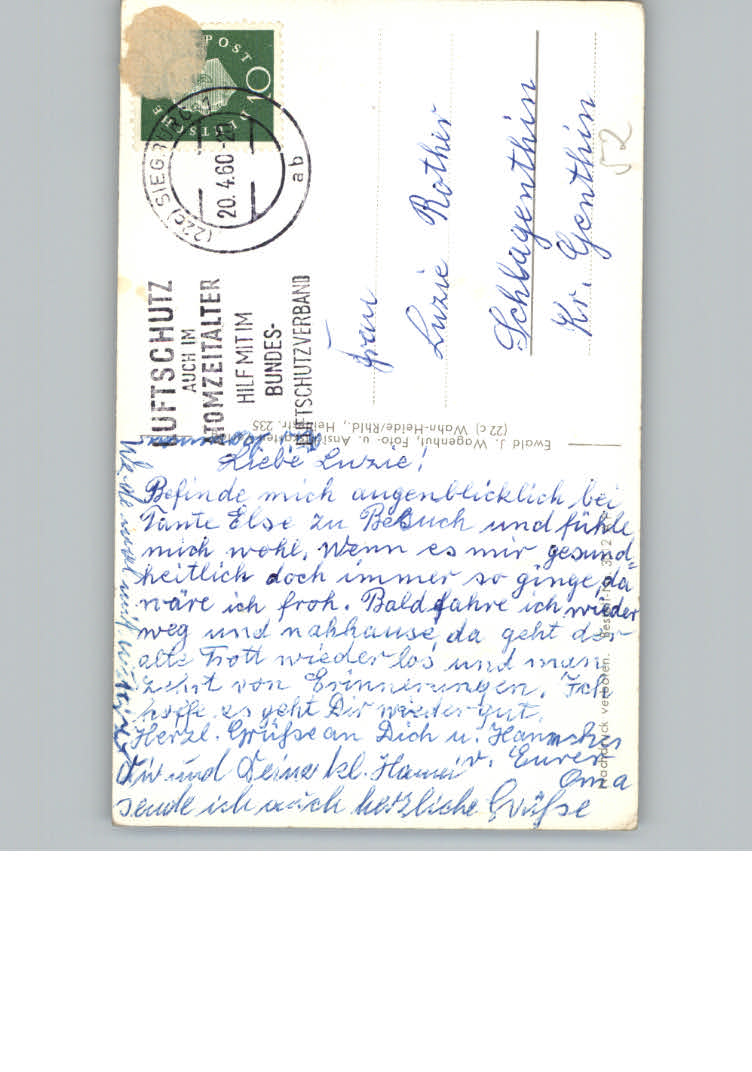 DEUTSCHE POST
10
(22c) SIEGBURG 1
20.4.60
ab
LUFTSCHUTZ
AUCH IM
ATOMZEITALTER
HILF MIT IM
BUNDES-
LUFTSCHUTZVERBAND
Frau
Luzie Rother
Schlagenthin
Kr. Genthin
52
Ewald J. Wagenhuf, Foto- u. Ansichtskarten
(22 c) Wahn-Heide/Rhld., Heidestr. 235
Liebe Luzie!
Befinde mich augenblicklich bei
Tante Else zu Besuch und fühle
mich wohl. Wenn es mir gesund=
heitlich doch immer so ginge, da
wäre ich froh. Bald fahre ich wieder
weg und nahhause, da geht der
alte Trott wieder los und man
zehrt von Erinnerungen. Ich
hoffe, es geht Dir wieder gut.
Herzl. Grüße an Dich u.
v. Eurer
Oma
Dir und Deine kl.
sende ich auch herzliche Grüße
Nachdruck verboten. Bestell-Nr.